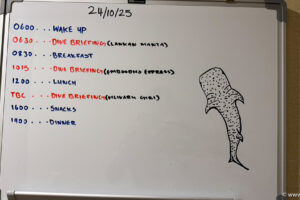 24/10/25
0600... WAKE UP
0630... DIVE BRIEFING (LANKAN MANTA)
0830... BREAKFAST
1015... DIVE BRIEFING
1200... LUNCH
TBC... DIVE BRIEFING
1600... SNACKS
1900... DINNER
© www